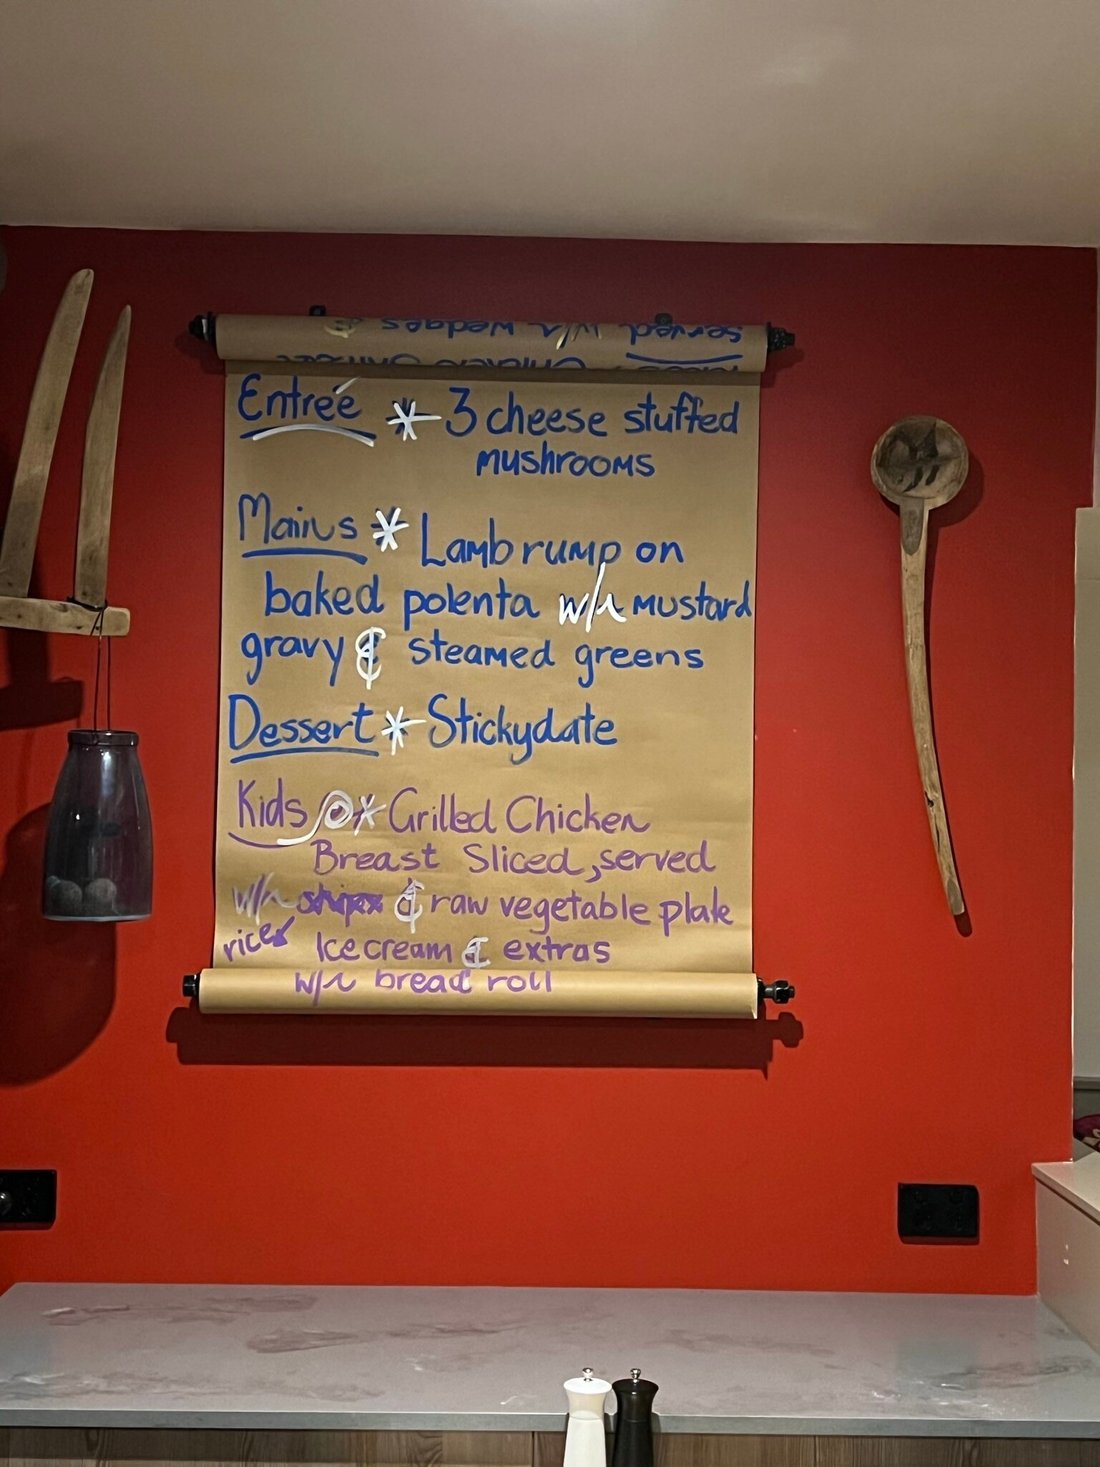 served w/ wedges &
Chicken
Entrée * 3 cheese stuffed
mushrooms
Mains * Lamb rump on
baked polenta w/ mustard
gravy & steamed greens
Dessert * Stickydate
Kids * Grilled Chicken
Breast Sliced, served
w/ chips & raw vegetable plate
rice Ice cream & extras
w/ bread roll